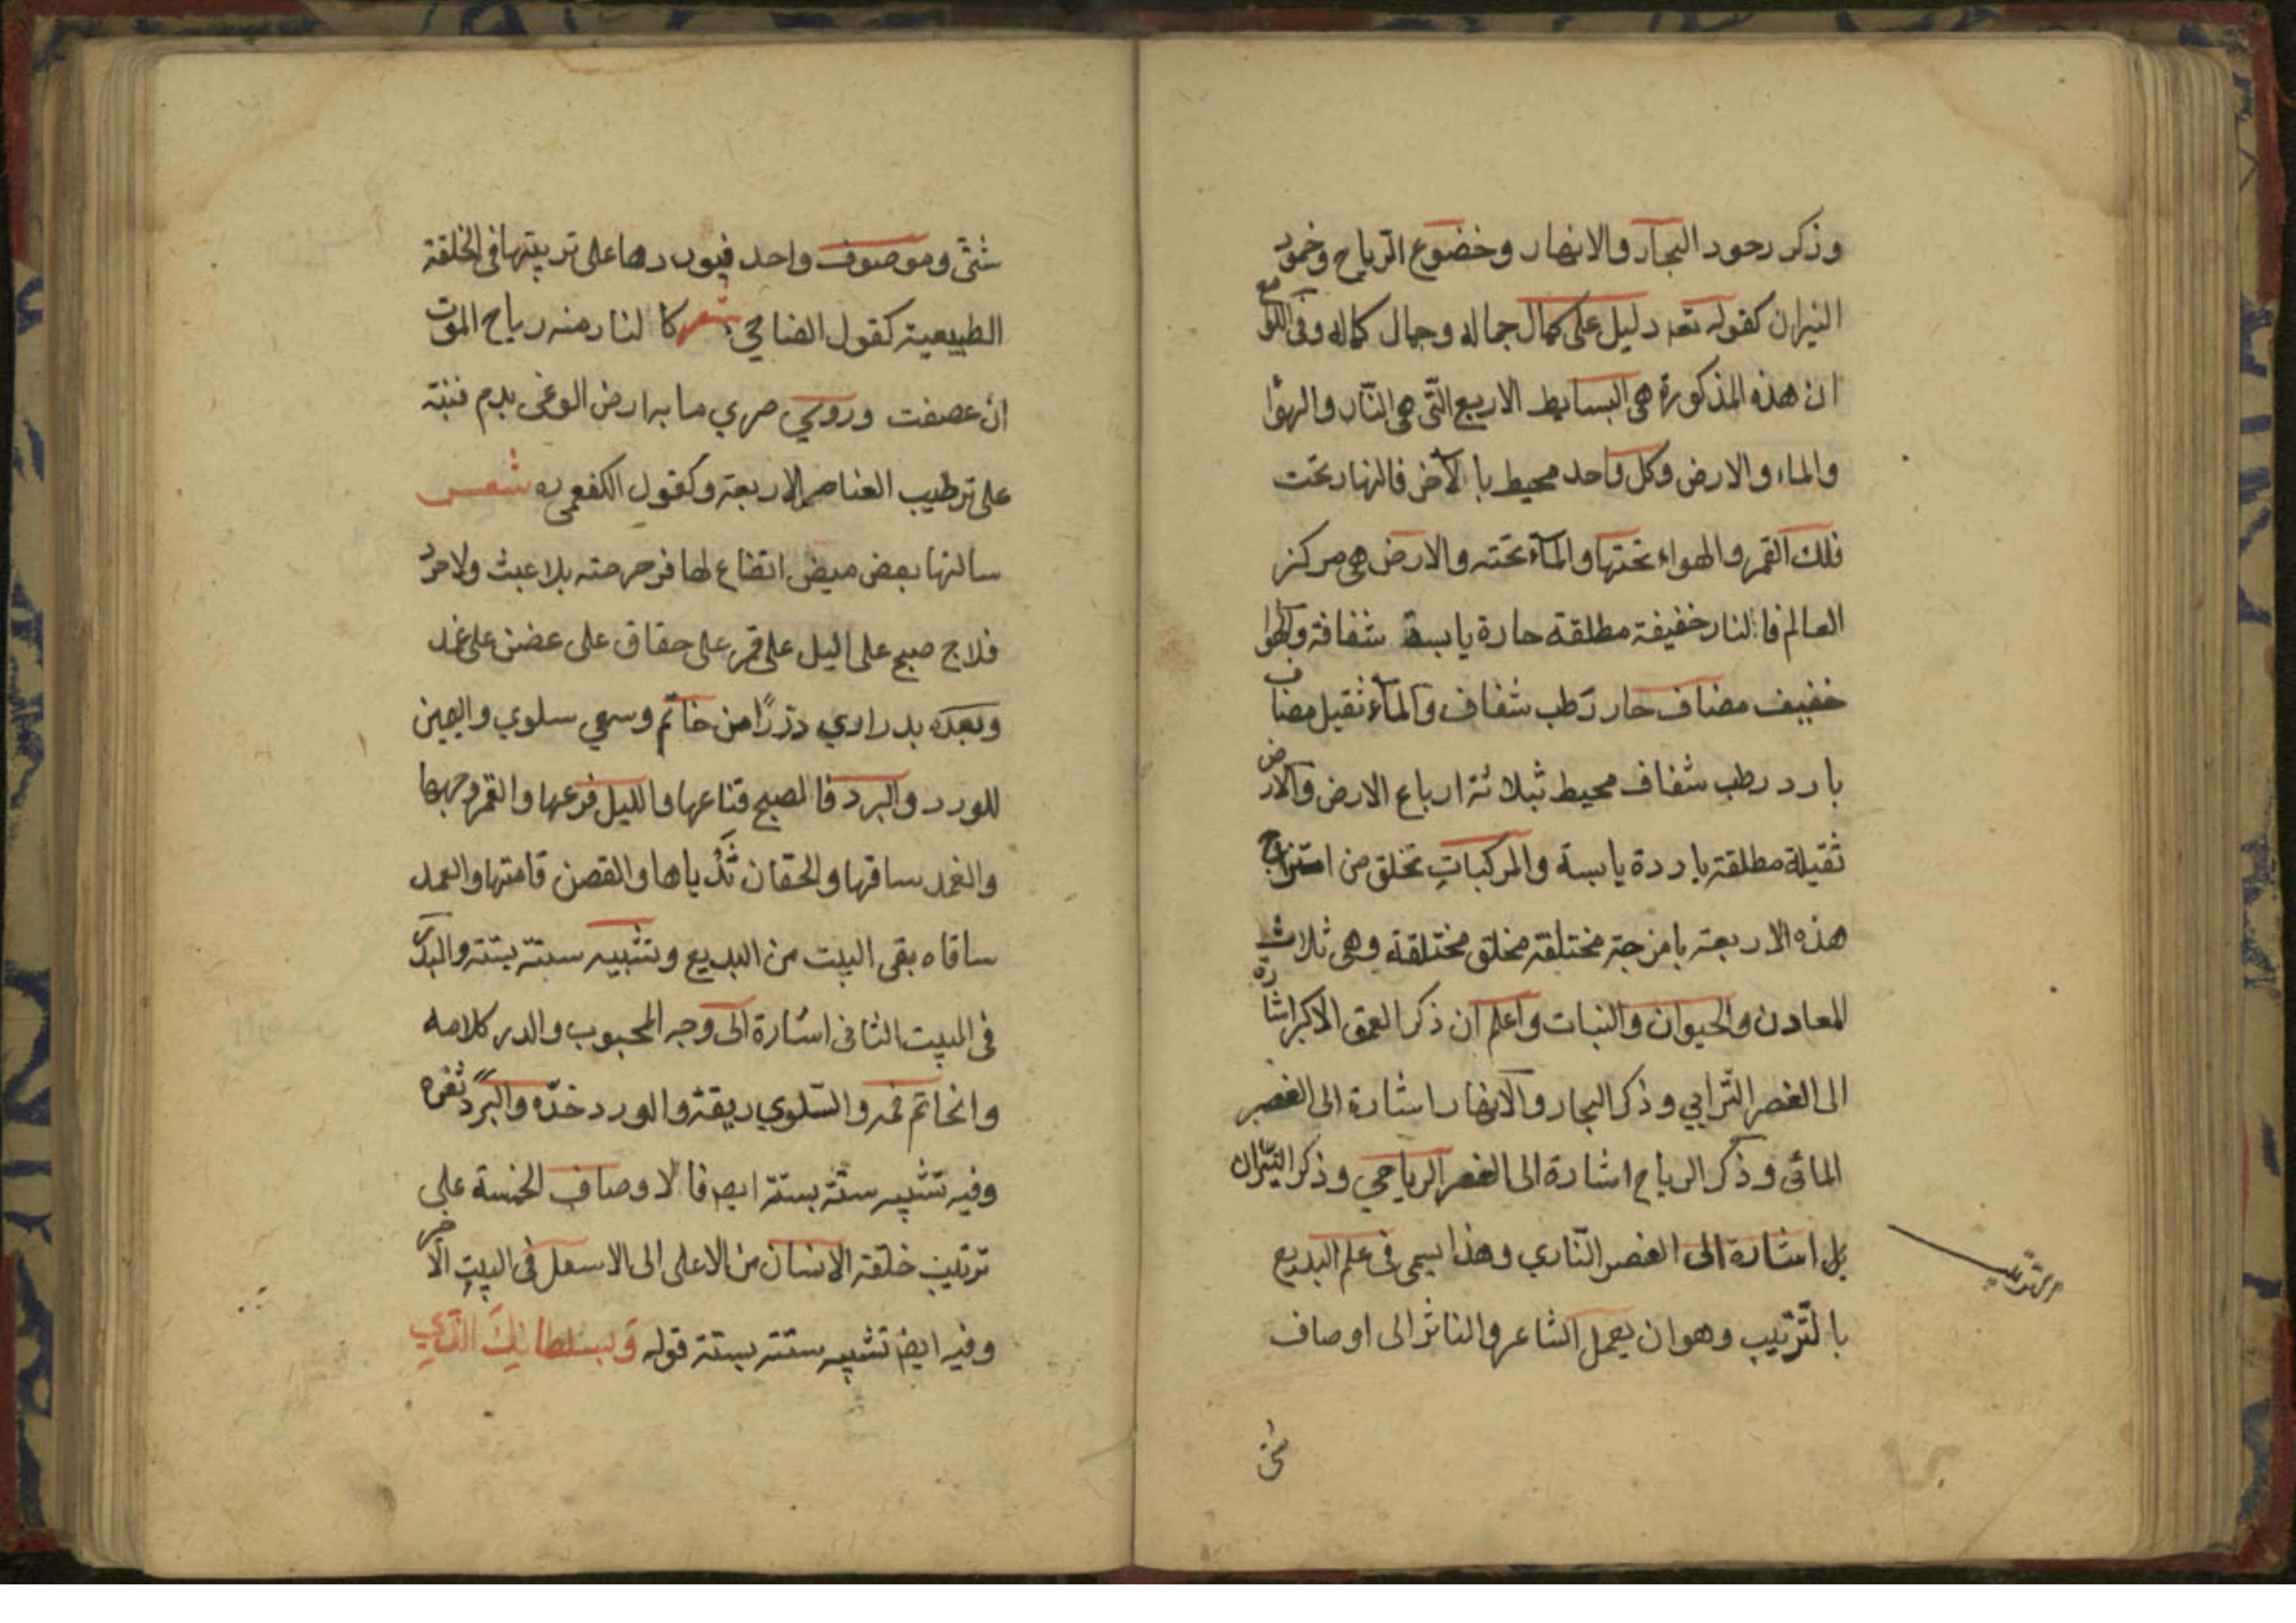 وذكر رحود البحار والانهار وخضوع الرياح وخمود
النيران كقوله تعه دليل على كمال جماله وجمال كماله وفى اللوامع
ان هذه المذكورة هى البسايط الاربع التى هى النار والهوا
والماء والارض وكل واحد محيط بالآخر فالنهار تحت
فلك القمر والهواء تحتها والماء تحته والارض هى مركز
العالم فالنار خفيفة مطلقة حارة يابسة شفافة والهوا
خفيف مضاف حار رطب شفاف والماء ثقيل مضاف
بارد رطب شفاف محيط بثلاثة ارباع الارض والارض
ثقيلة مطلقة باردة يابسة والمركبات تخلق من امتزاج
هذه الاربعة بامزجة مختلفة مخلق مختلقة وهى ثلاث
المعادن والحيوان والنبات واعلم ان ذكر العمق الاكبر اشارة
الى العنصر الترابي وذكر البحار والانهار اشارة الى العنصر
المائى وذكر الرياح اشارة الى العنصر الرياحي وذكر النيران
بل اشارة الى العنصر النّاري وهذا يسمى فى علم البديع
بالتّرتيب وهو ان يعمل الشاعر والناثر الى اوصاف
الترتيب
شتى
شتى وموصوف واحد فيوردها على تربيتها فى الخلقة
الطبيعية كقول الضاحي شعر كالنار منه رياح الموت
ان عصفت وروي صري ما به ارض الوغى بدم فنبّه
على ترطيب العناصر الاربعة وكقول الكفعمى ره شعر
سالتها بعض ميض انقناع لها فزحزحته بلا عبث ولا حرد
فلاج صبح على اليل على قمر على حقاق على غضن على غمد
وبعده بدراوي دررًا من خاتم وسعي سلوي واليعين
للورد والبرد فالصبح قناعها والليل فرعها والقمر وجهها
والغمد ساقها والحقان ثدياها والقصن قامتها والعمد
ساقاه بقى البيت من البديع وتشبيه ستة بستة والبدر
فى البيت الثانى اشارة الى وجه المحبوب والدر كلامه
وانخاتم فمه والسّلوي ريقة والورد خدّه والبرد ثغره
وفيه تشبيه ستة بستة ايضر فالاوصاف الخمسة على
ترتيب خلقة الانسان من الاعلى الى الاسعل فى البيت الآخر
وفيه ايض تشبيه ستة بستة قوله وَبسلطانِكَ الّذي